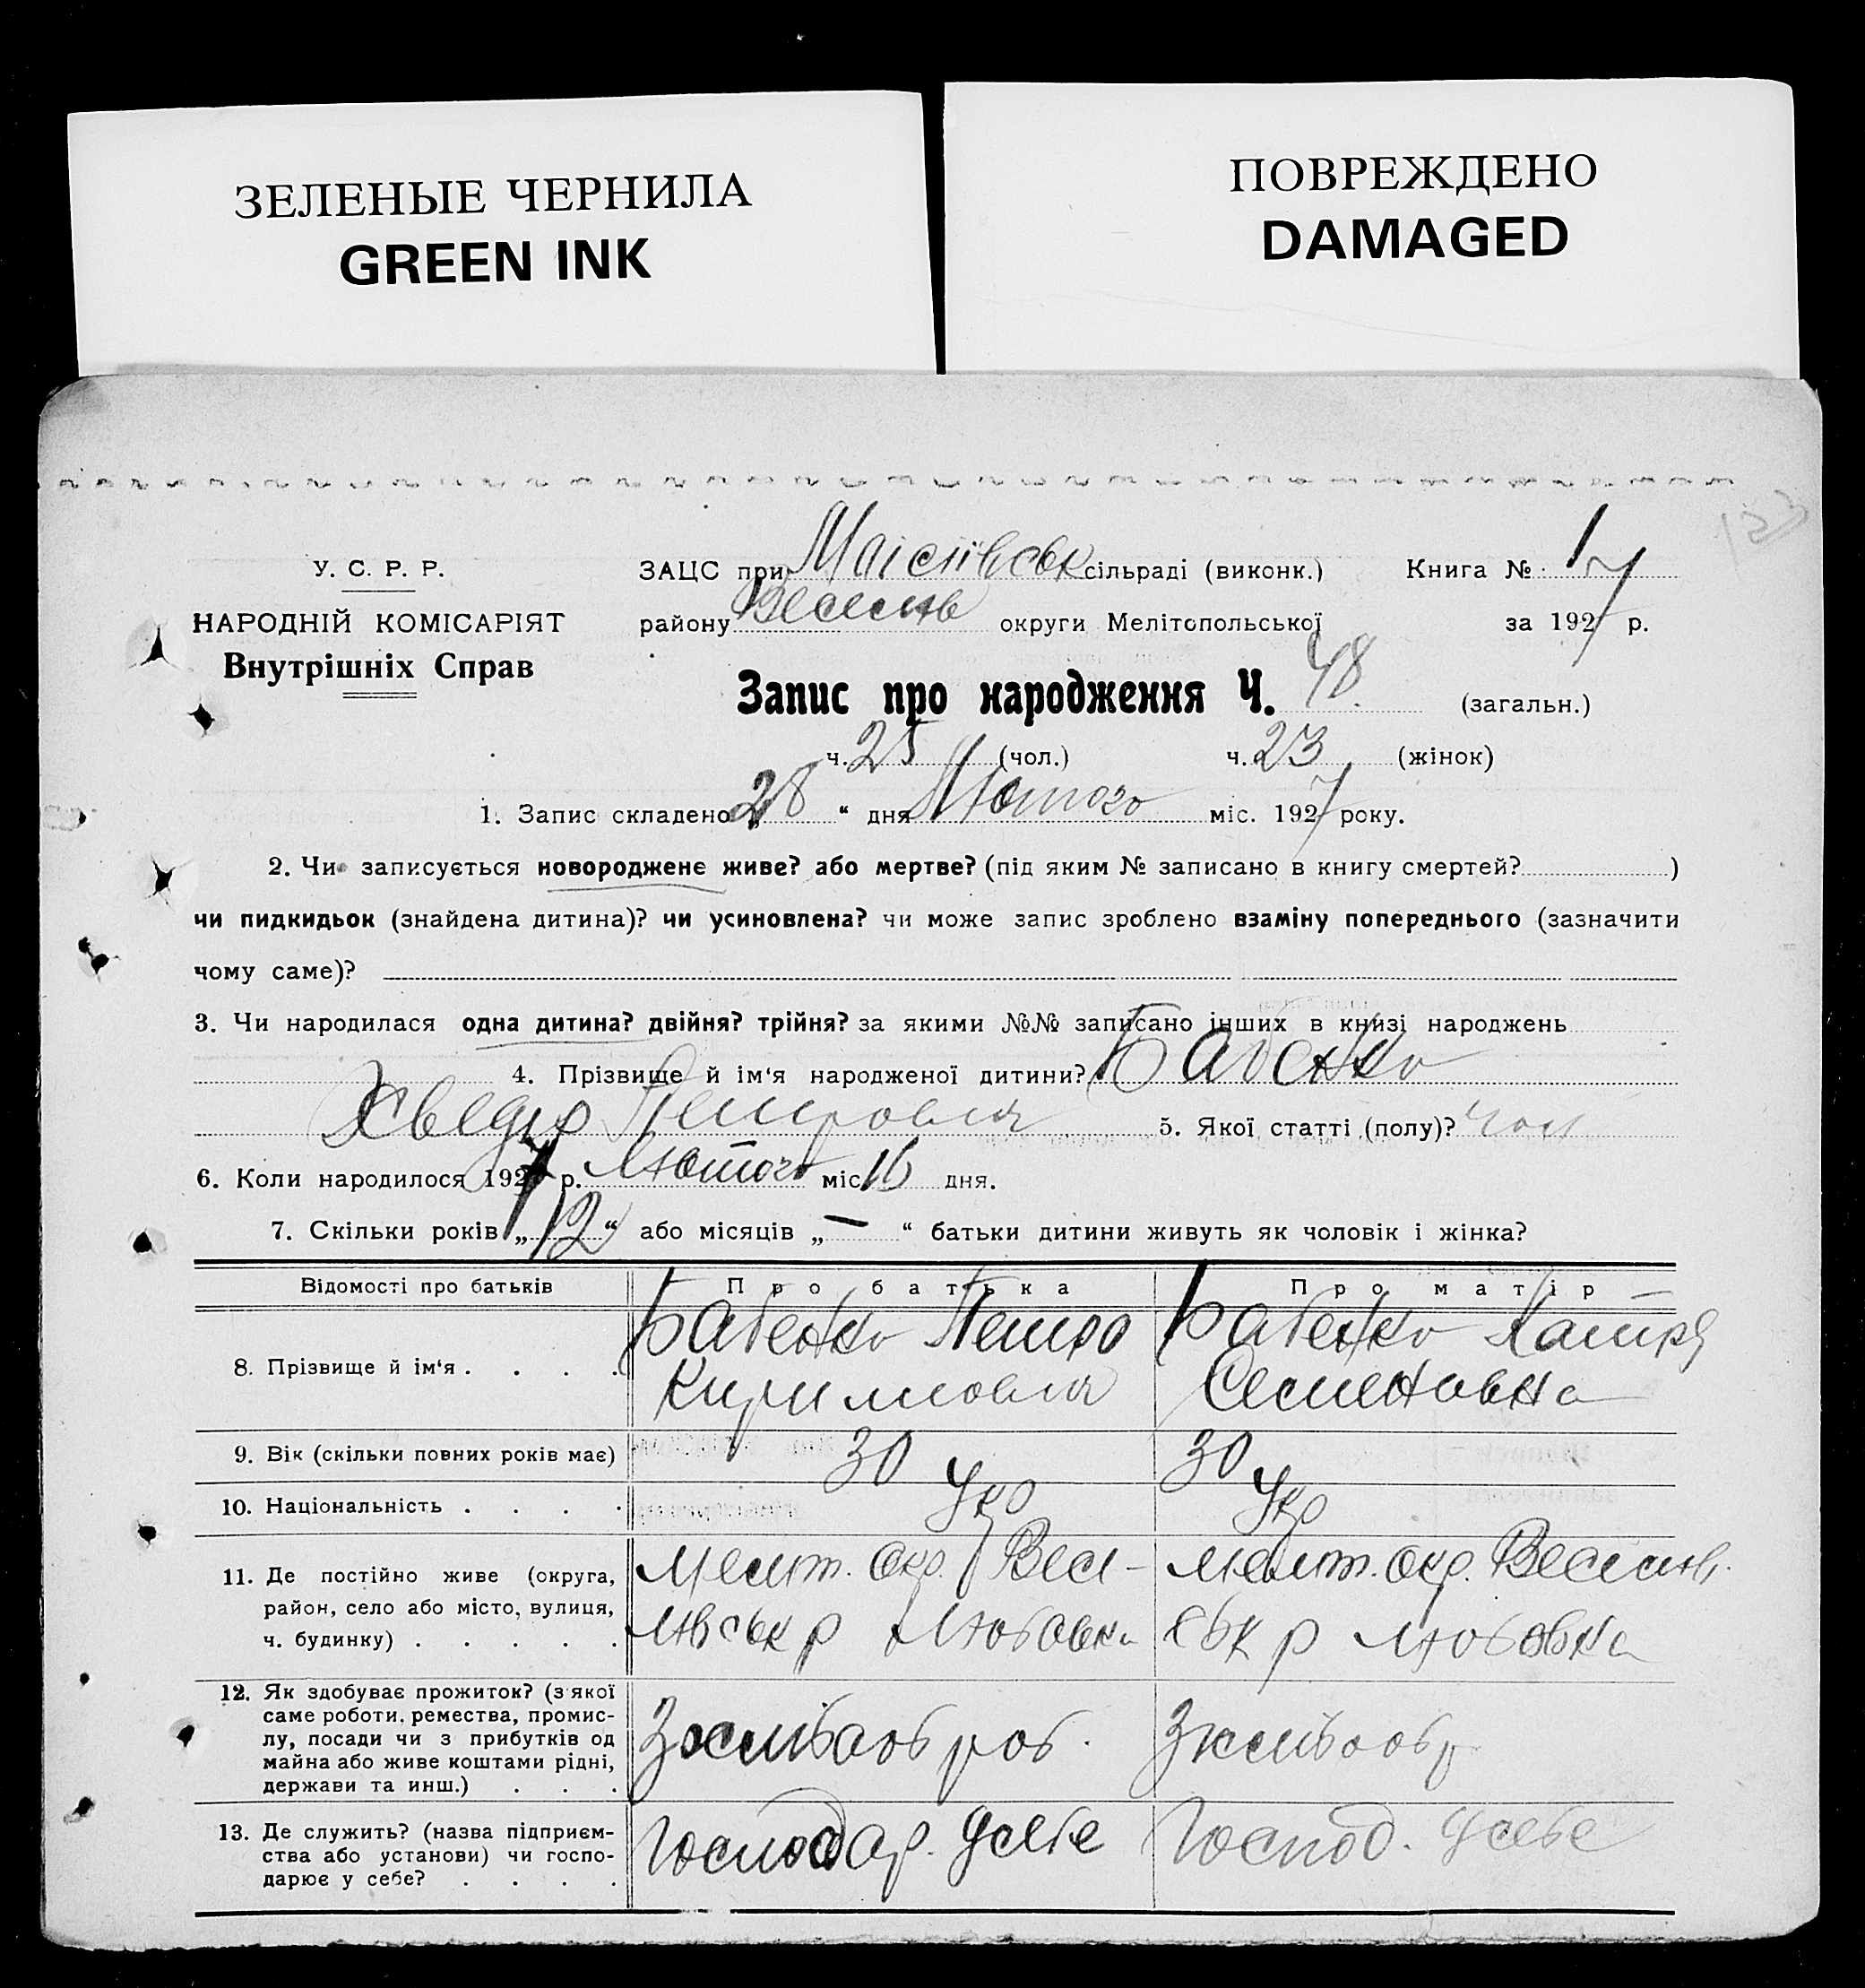 ЗЕЛЕНЫЕ ЧЕРНИЛА
GREEN INK
ПОВРЕЖДЕНО
DAMAGED
У. С. Р. Р.
НАРОДНІЙ КОМІСАРІЯТ
Внутрішніх Справ
ЗАЦС при сільраді (виконк.) Книга № 1
району округи Мелітопольської за 1927 р.
Запис про народження Ч. 48. (загальн.)
ч. 25 (чол.) ч. 23 (жінок)
1. Запис складено „28“ дня Лютого міс. 1927 року.
2. Чи записується новороджене живе? або мертве? (під яким № записано в книгу смертей? )
чи пидкидьок (знайдена дитина)? чи усиновлена? чи може запис зроблено взаміну попереднього (зазначити
чому саме)?
3. Чи народилася одна дитина? двійня? трійня? за якими №№ записано інших в книзі народжень
4. Прізвище й ім‘я народженої дитини? Бабенко
Хведір Петрович 5. Якої статті (полу)? чол
6. Коли народилося 1927 р. Лютого міс. 16 дня.
7. Скільки років „12“ або місяців „—“ батьки дитини живуть як чоловік і жінка?
Відомості про батьків Про батька Про матір
8. Прізвище й ім‘я . . . . Бабенко Петро Бабенко Катря
Семеновна
9. Вік (скільки повних років має) 30 30
10. Національність . . . . Укр Укр
11. Де постійно живе (округа, Меліт. Окр. Меліт. Окр.
район, село або місто, вулиця, р Любовка ськ р Любовка
ч. будинку) . . . . .
12. Як здобуває прожиток? (з якої
саме роботи, ремества, промис-
лу, посади чи з прибутків од
майна або живе коштами рідні, З хлібооб роб. З хлібооб р
держави та инш.) . . .
13. Де служить? (назва підприєм-
ства або установи) чи госпо- Господар. у себе Господ. у себе
дарює у себе? . . . .